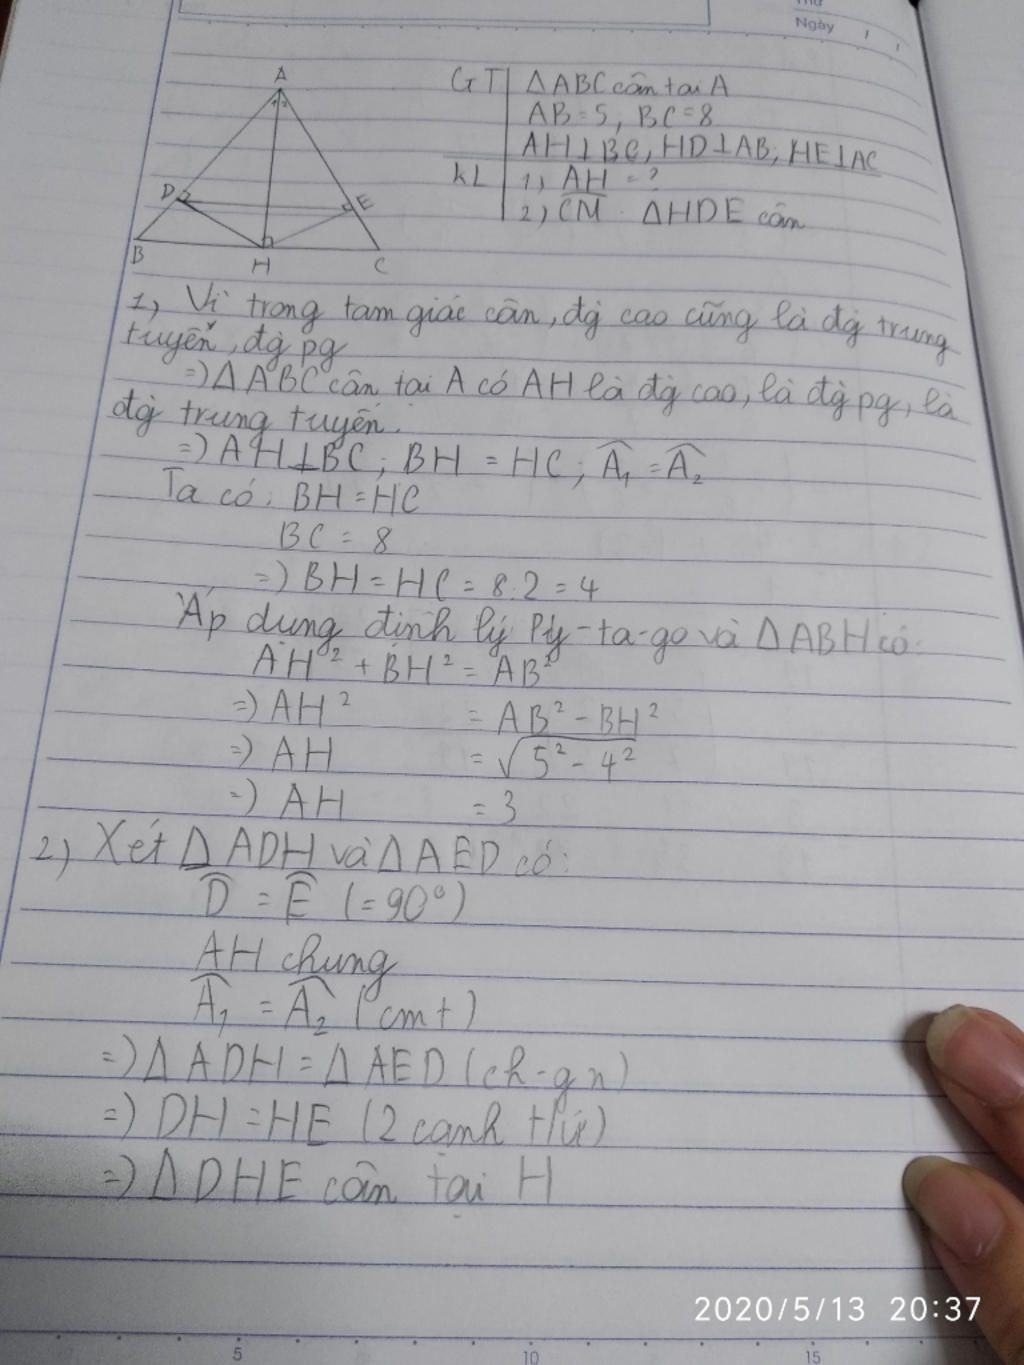 Thứ
Ngày / /
A
1 2
D
E
B
H
C
GT | ΔABC cân tại A
AB = 5, BC = 8
AH ⊥ BC, HD ⊥ AB, HE ⊥ AC
KL | 1, AH = ?
2, CM ΔHDE cân
1, Vì trong tam giác cân, đg cao cũng là đg trung
tuyến, đg pg
=) ΔABC cân tại A có AH là đg cao, là đg pg, là
đg trung tuyến.
=) AH ⊥ BC; BH = HC; Â₁ = Â₂
Ta có: BH = HC
BC = 8
=) BH = HC = 8:2 = 4
Áp dụng định lý Py-ta-go và ΔABH có:
AH² + BH² = AB²
=) AH² = AB² - BH²
=) AH = √5² - 4²
=) AH = 3
2) Xét ΔADH và ΔAED có:
D̂ = Ê (= 90°)
AH chung
Â₁ = Â₂ (cmt)
=) ΔADH = ΔAED (ch-gn)
=) DH = HE (2 cạnh t/ứ)
=) ΔDHE cân tại H
2020/5/13 20:37
5 10 15